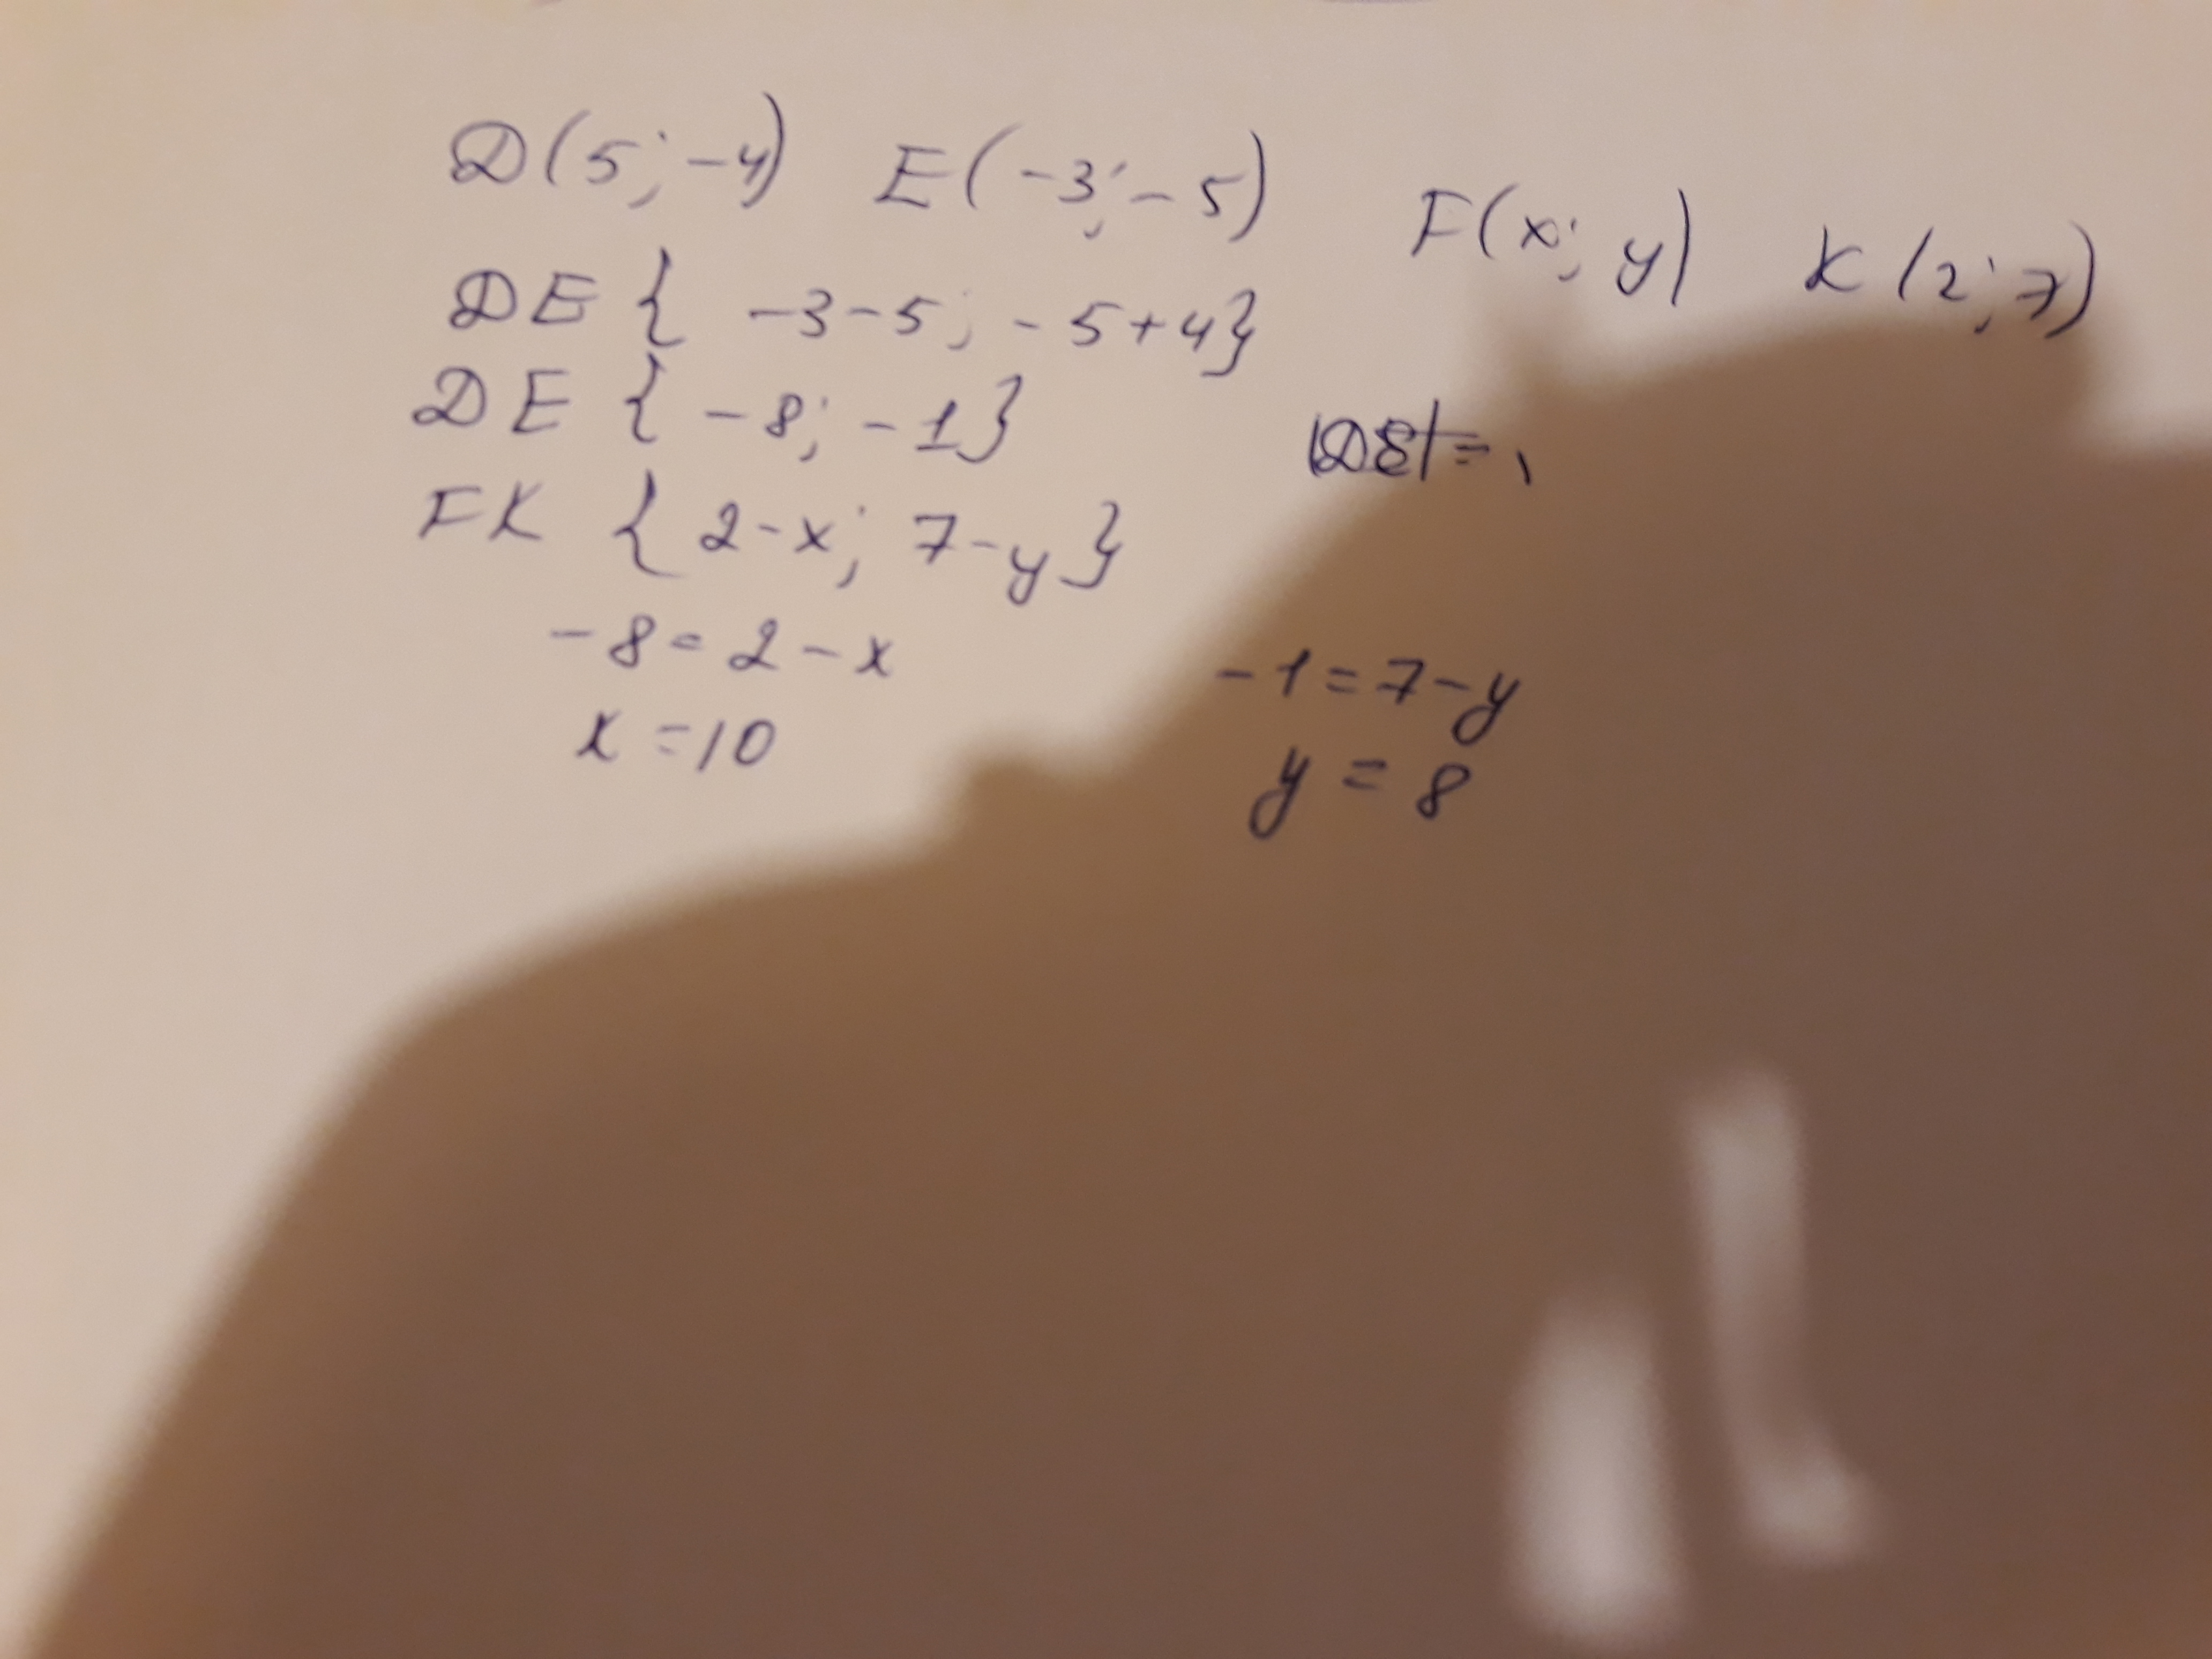 D(5; -4) E(-3; -5) F(x; y) K(2; 7)
DE { -3-5; -5+4}
DE { -8; -1} |DE|=
FK { 2-x; 7-y}
-8=2-x -1=7-y
x=10 y=8